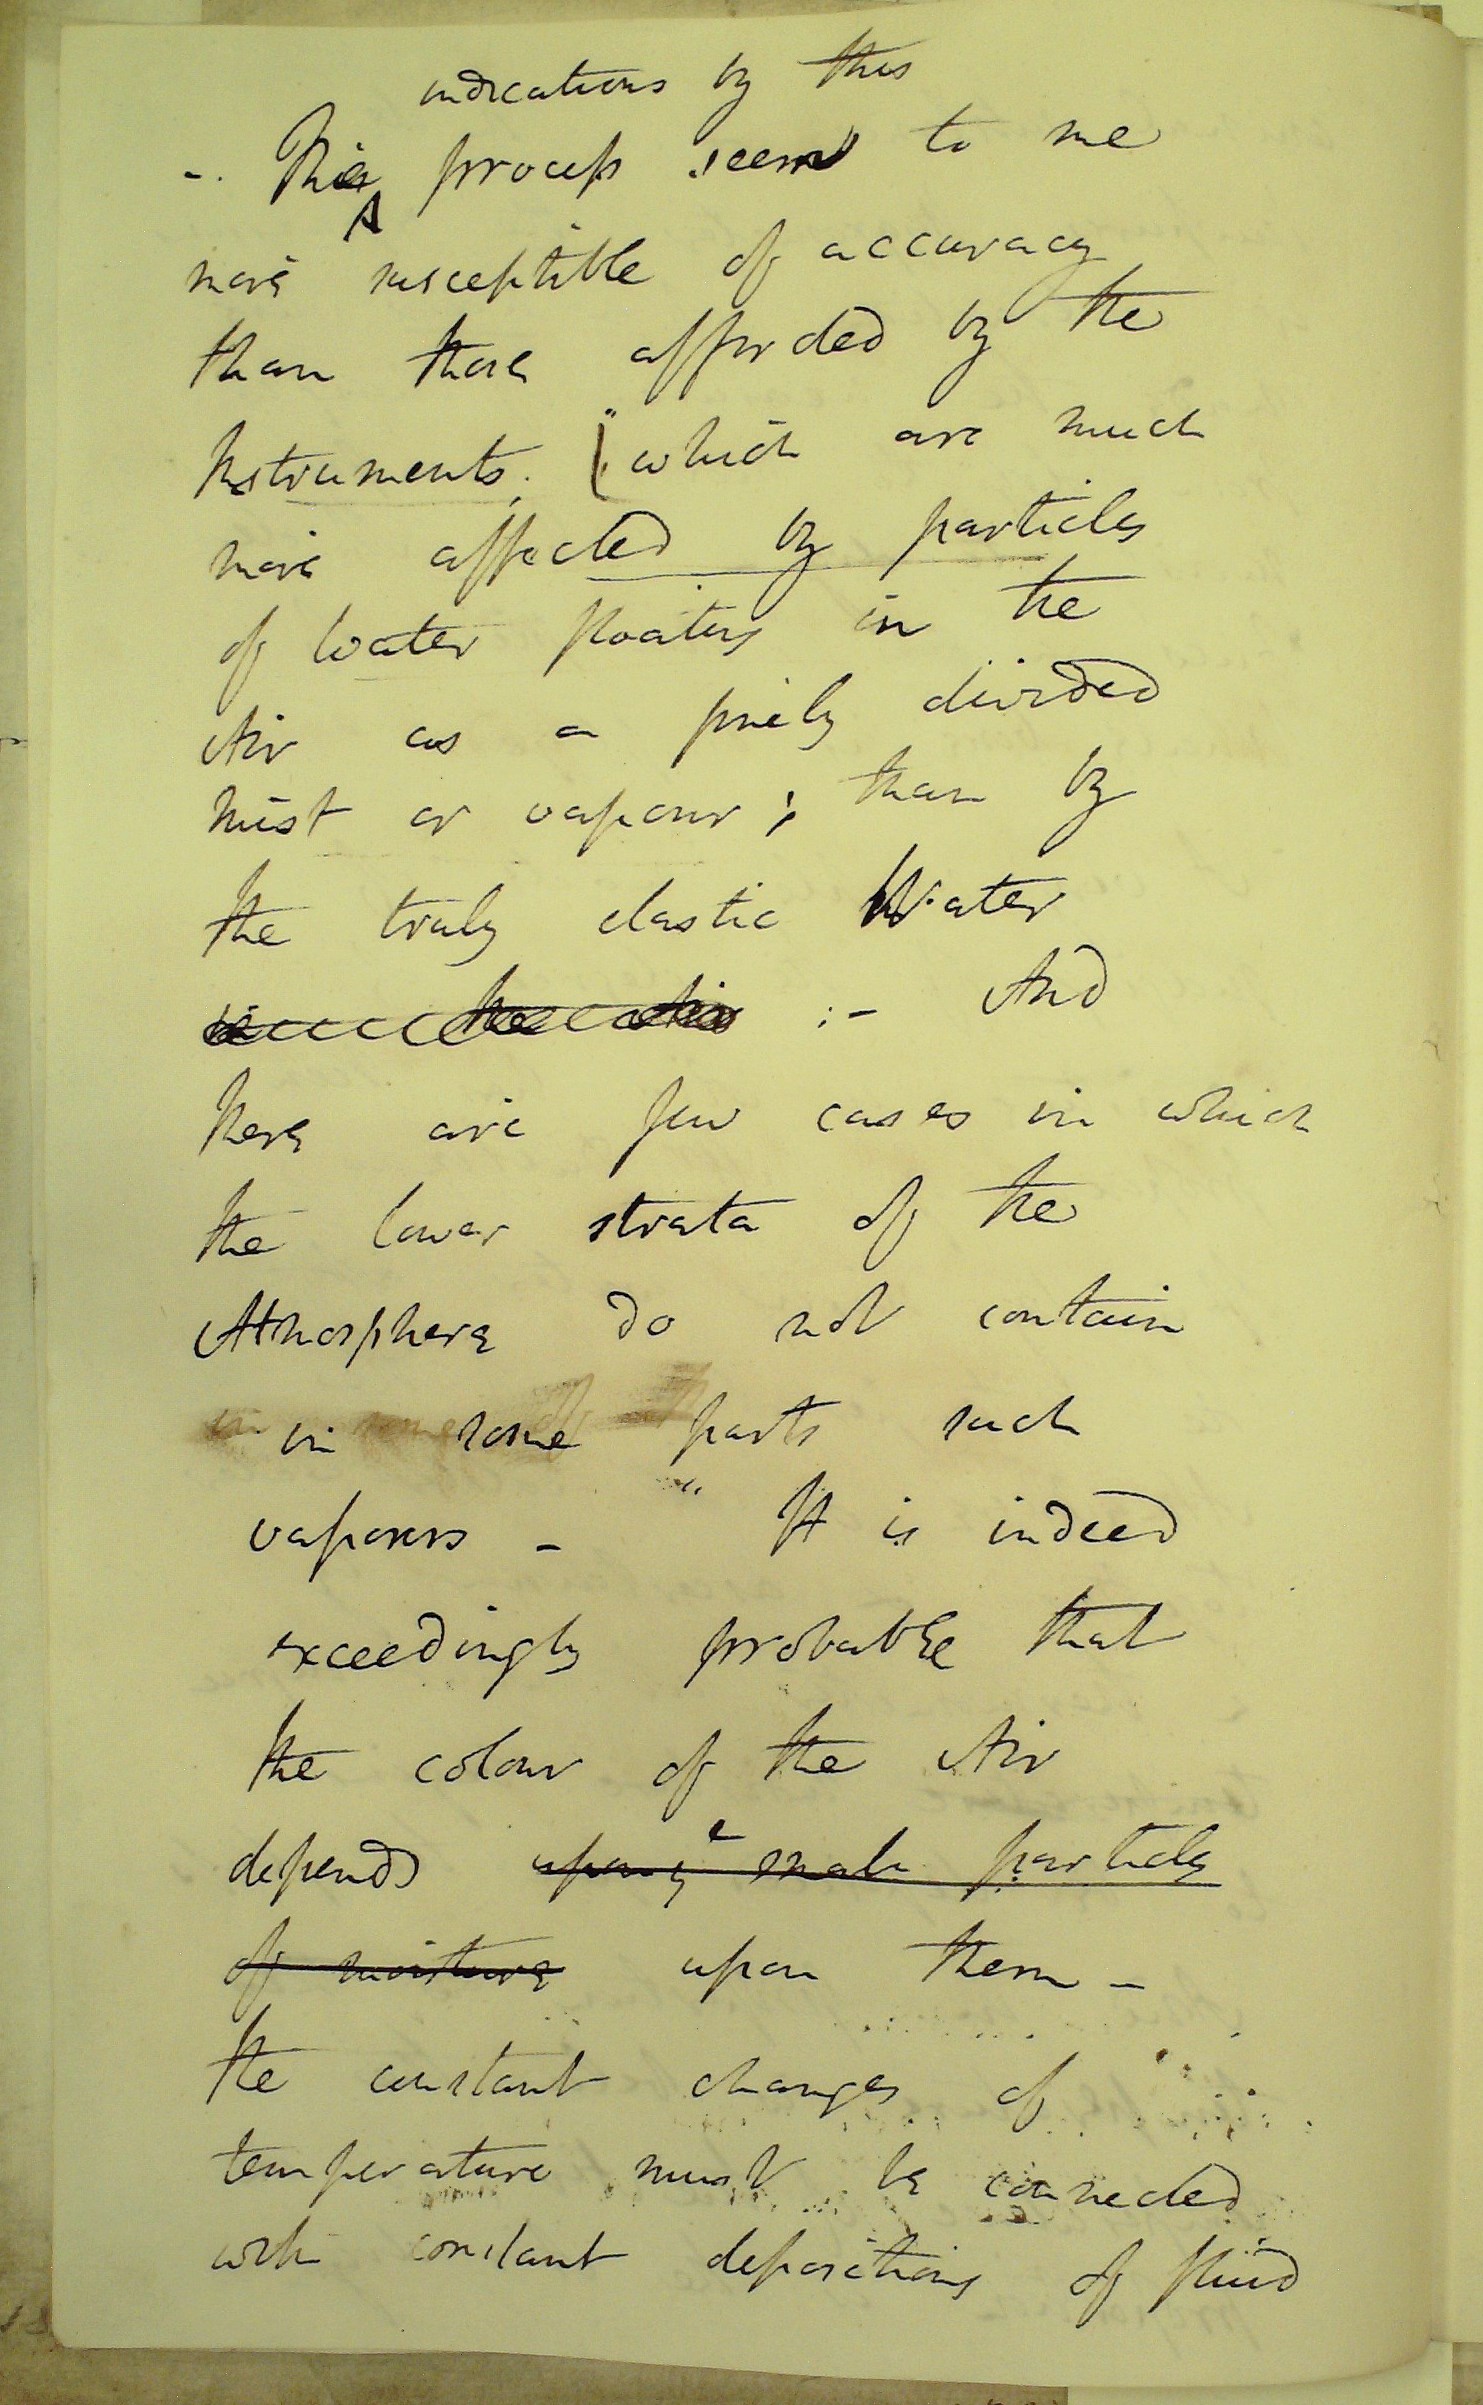 indications by this
-. The process seem to me
more susceptible of accuracy
than those afforded by the
Instruments; (which are much
more affected by particles
of water floating in the
Air as a finely divided
mist or vapour; than by
the truly elastic Water
in the Air :- And
there are few cases in which
the lower strata of the
Atmosphere do not contain
in some parts such
vapours - " It is indeed
exceedingly probable that
the colour of the Air
depends upon small particles
of moisture upon them -
the constant changes of
temperature must be connected
with constant depositions of fluid